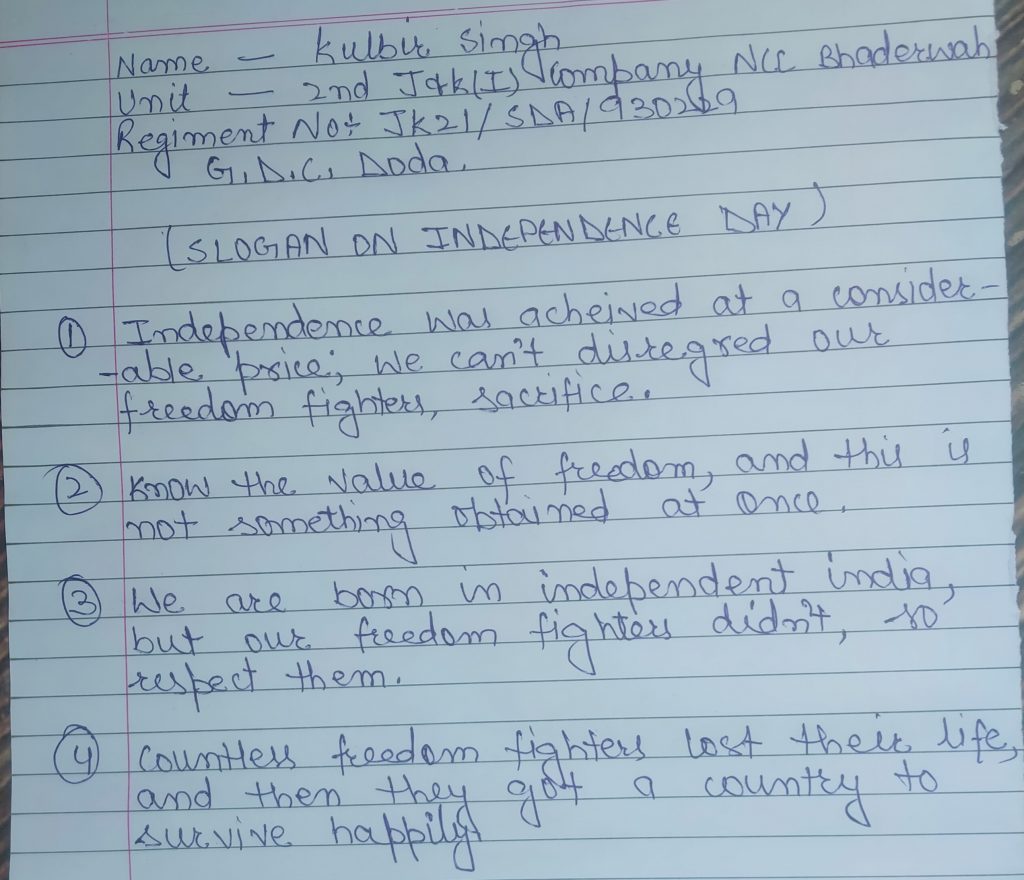 Name - Kulbir Singh
Unit - 2nd J&K(I) Company NCC Bhaderwah
Regiment No: JK21/SDA/930269
G.D.C. Doda.
(SLOGAN ON INDEPENDENCE DAY)
① Independence was acheived at a consider-
-able price; we can't disregred our
freedom fighters, sacrifice.
② Know the value of freedom, and this is
not something obtained at once.
③ We are born in independent india,
but our freedom fighters didn't, so
respect them.
④ Countless freedom fighters lost their life,
and then they got a country to
survive happily.